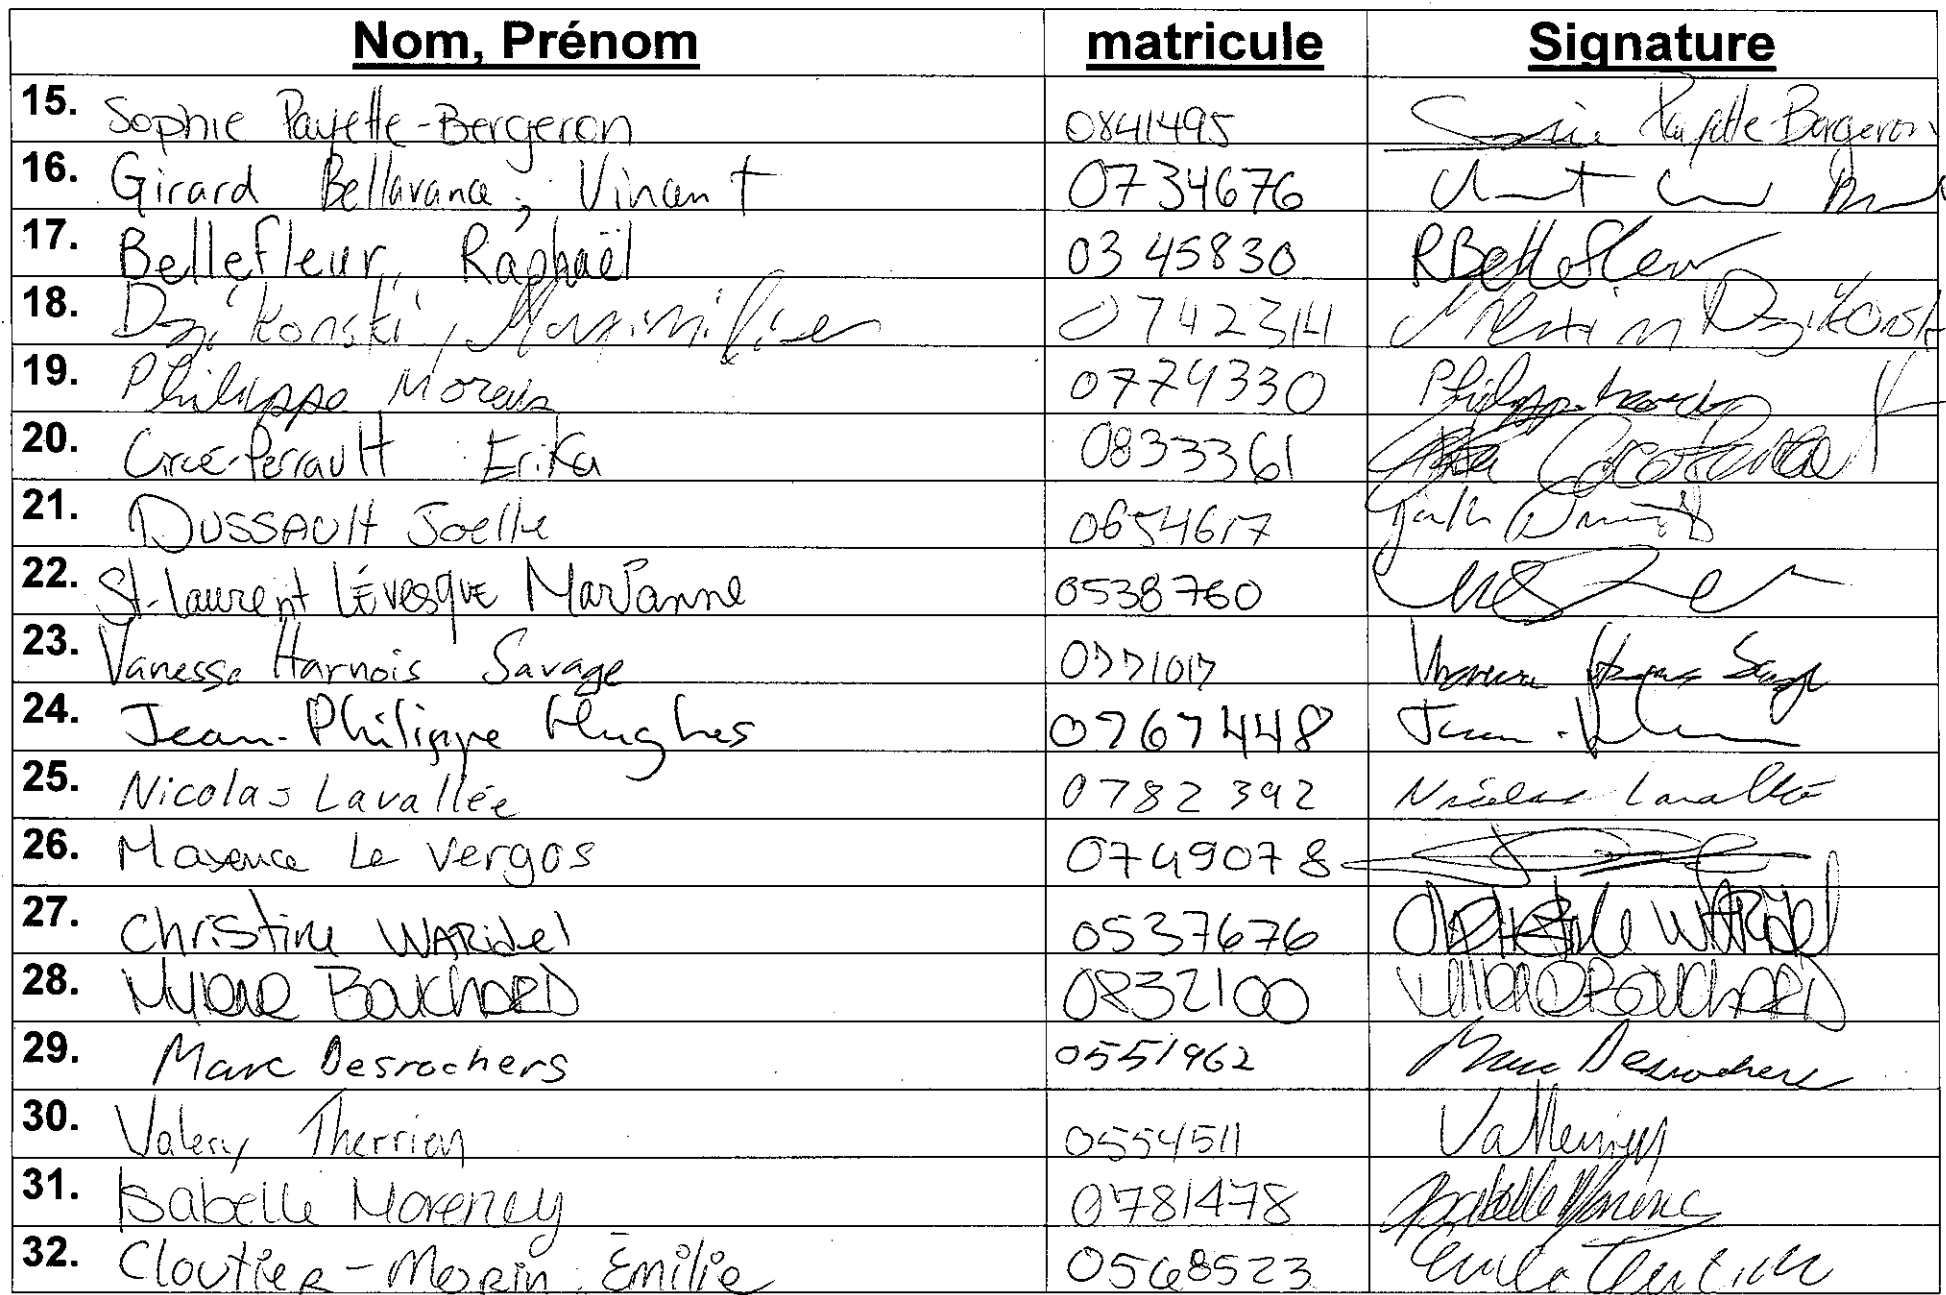 Nom, Prénom matricule Signature
15. Sophie Payette-Bergeron 0841495 Sophie Payette Bergeron
16. Girard Bellavance, Vincent 0734676
17. Bellefleur, Raphaël 0345830 RBellefleur
18. Dzikonski, Maximilien 0742314 Dzikonski
19. Philippe Moreau 0774330 Philippe Moreau
20. Circé-Perrault Erika 0833361
21. DUSSAULT Joelle 0654617
22. St-Laurent LÉVesQUE Marianne 0538760
23. Vanessa Harnois Savage 0771017 Vanessa Harnois Savage
24. Jean-Philippe Hughes 0767448 Jean-
25. Nicolas Lavallée 0782392 Nicolas Lavallée
26. Maxence Le Vergos 0749078
27. Christine WARidel 0537676 CHRISTINE WARIDEL
28. MYLÈNE BOUCHARD 0832100 MYLÈNE BOUCHARD
29. Marc Desrochers 0551962 Marc Desrochers
30. Valery Therrien 0554511
31. Isabelle Morency 0781478 Isabelle Morency
32. Cloutier-Morin Émilie 0568523